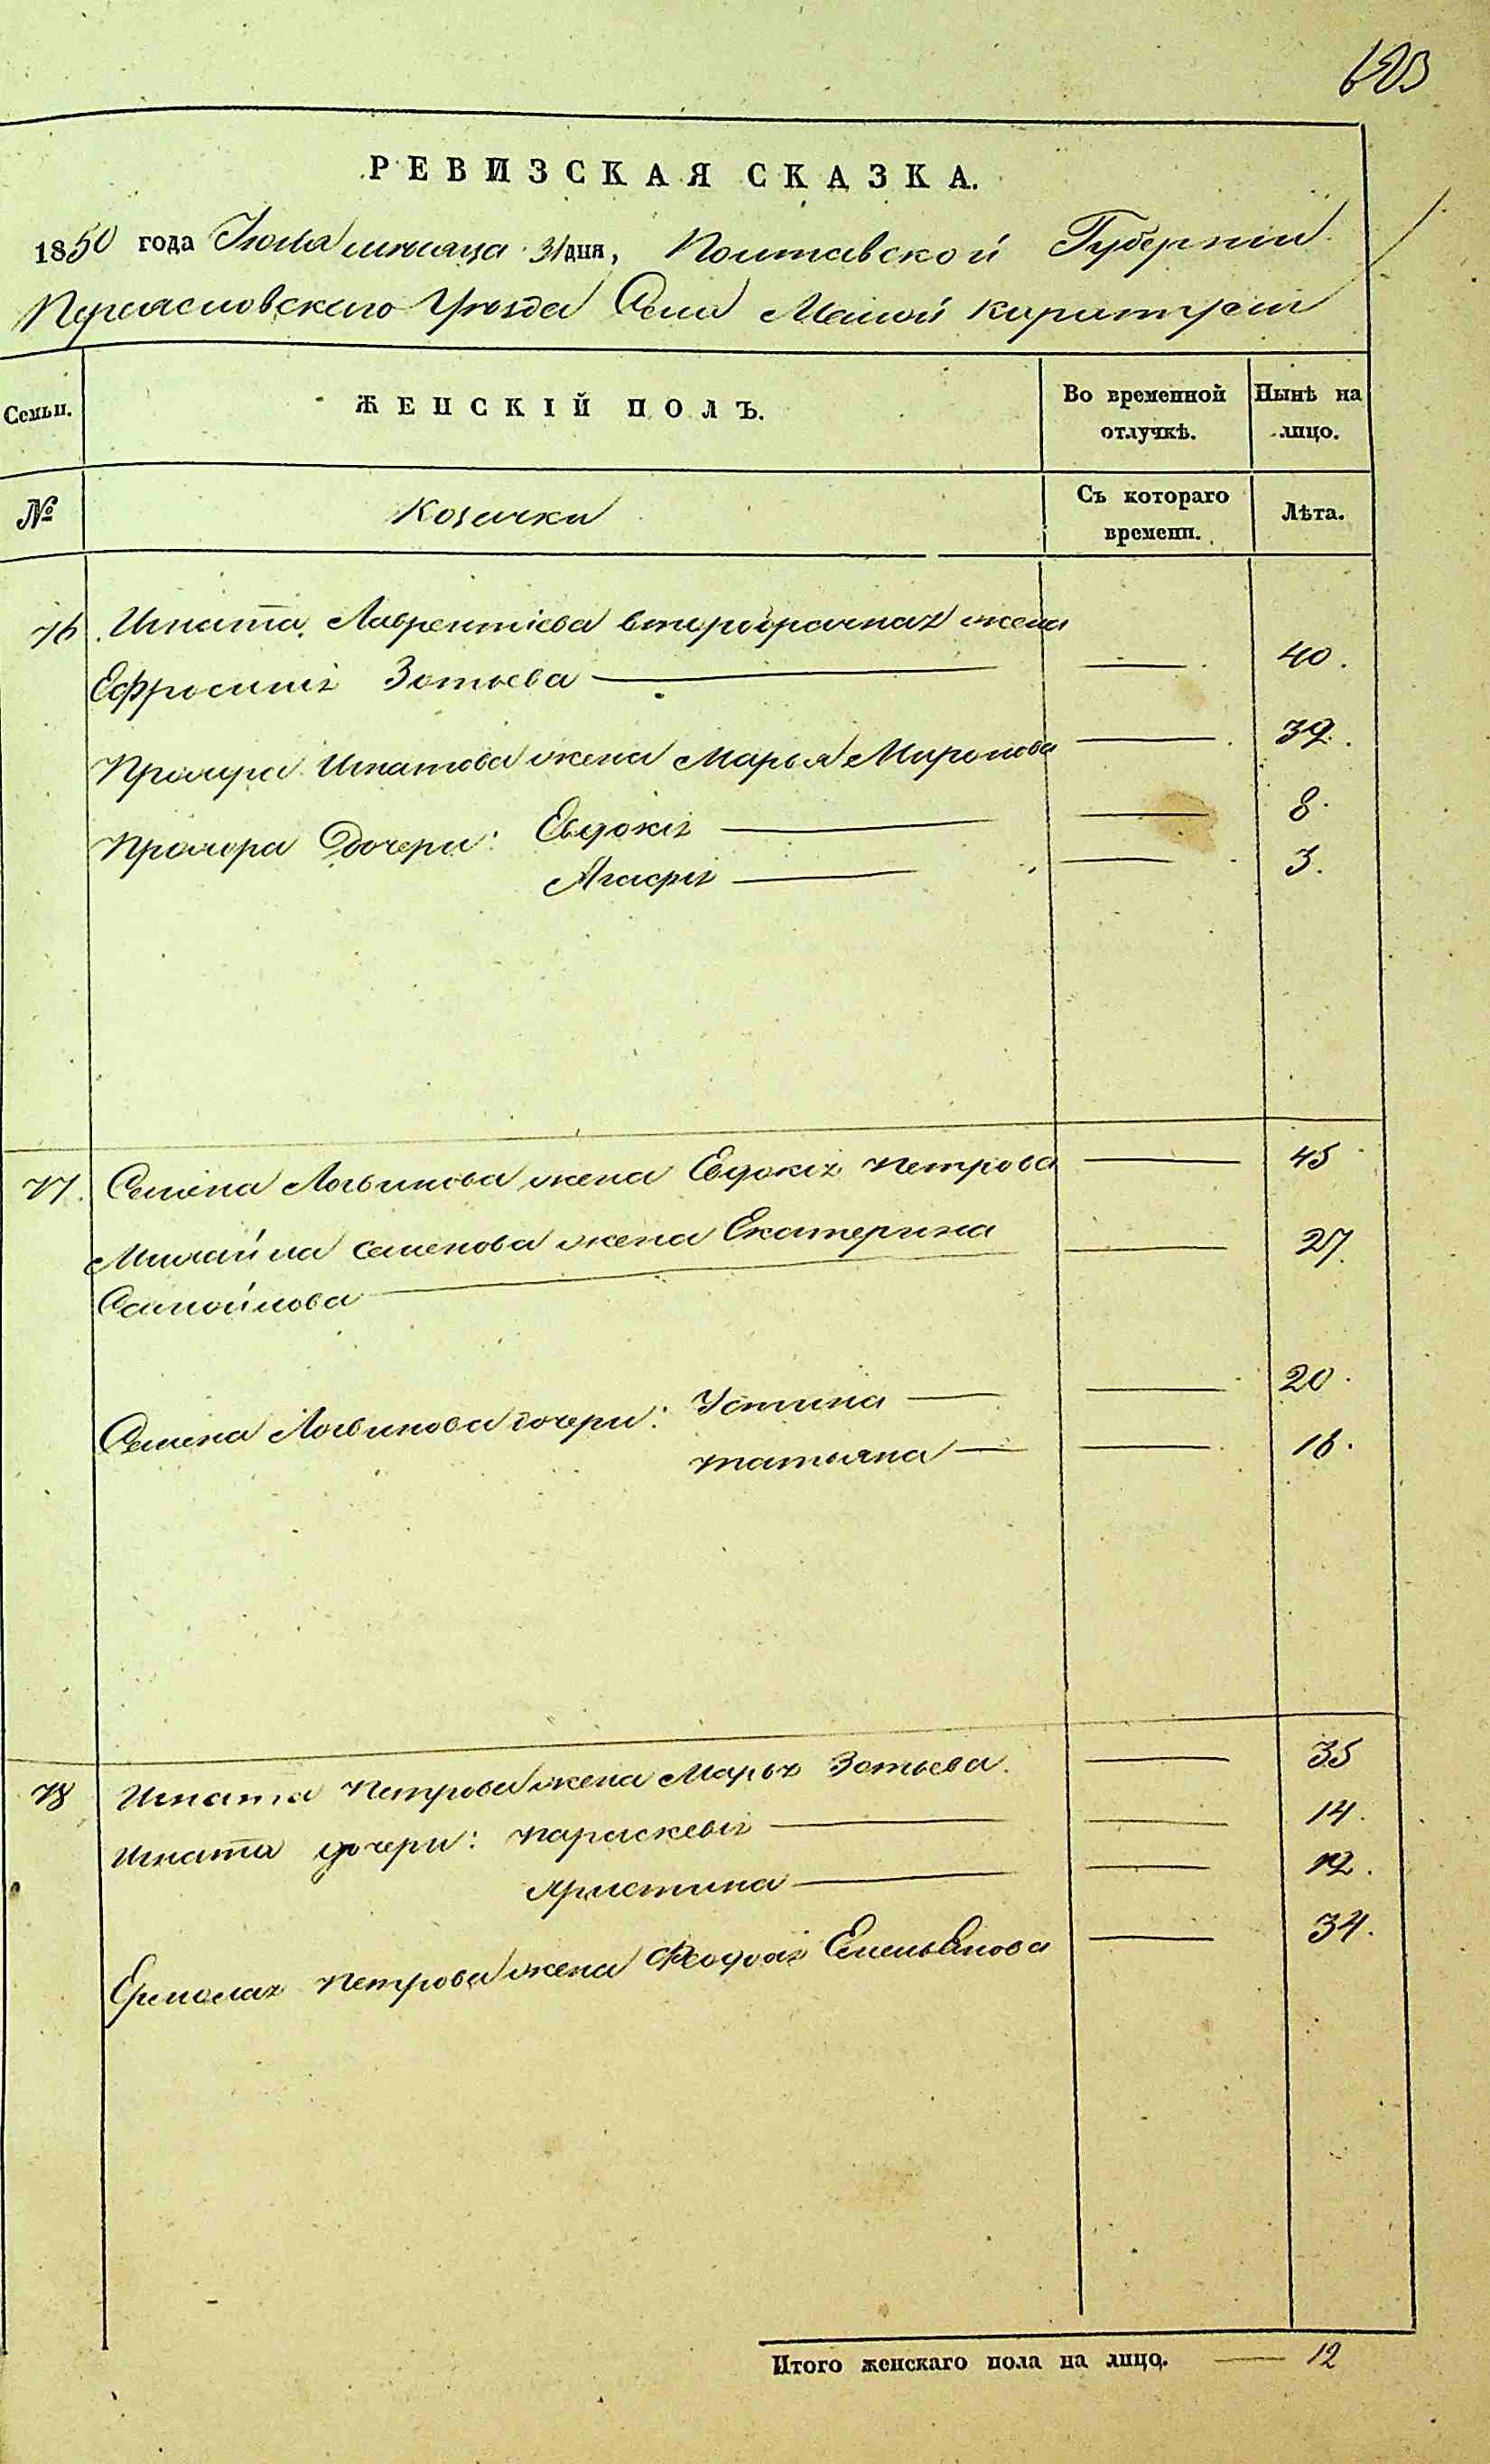 603
РЕВИЗСКАЯ СКАЗКА.
1850 года Іюля мѣсяца 31 дня, Полтавской Губерніи
Переясловского Уѣзда Села Малой Каратули
Семьи. ЖЕНСКІЙ ПОЛЪ. Во временной отлучкѣ. Нынѣ на лицо.
№ Козачки Съ котораго времени. Лѣта.
76. Игната Лаврентіева второбрачная жена
Ефросинія Зотьева 40.
Прохора Игнатова жена Марья Миронова 39.
Прохора Дочери: Евдокія 8.
Агафія 3.
77. Семена Логвинова жена Евдокія Петрова 45
Михайла Семенова жена Екатерина 27.
Самойлова
Семена Логвинова дочери: Устина 20.
Татьяна 16.
78 Игната Петрова жена Марья Зотьева. 35
Игната дочери: Параскевія 14.
Христина 12.
Ермолая Петрова жена Феодосія Емельянова 34.
Итого женскаго пола на лицо. 12